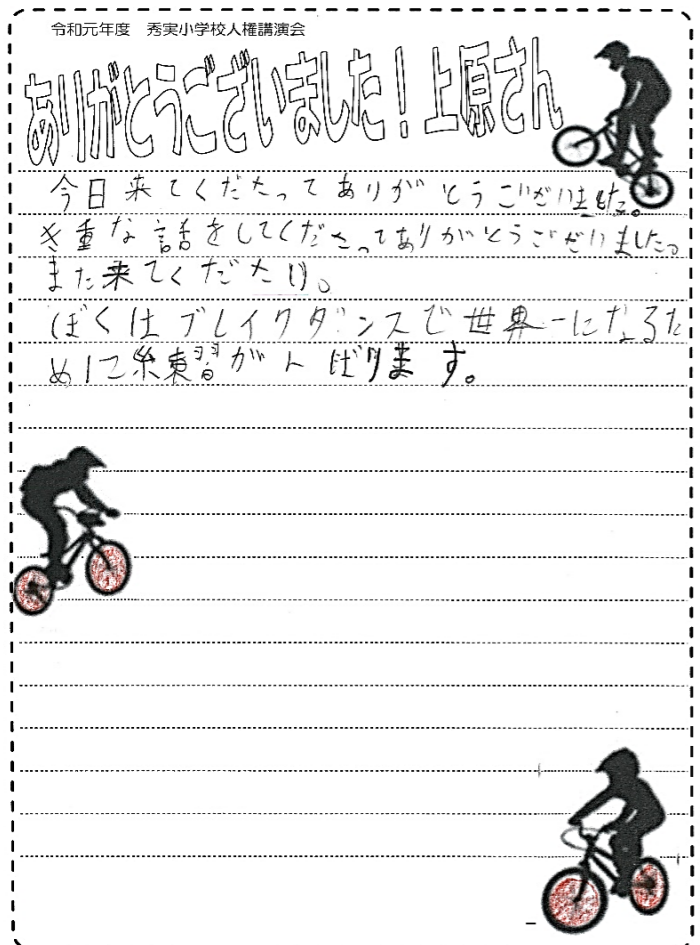 令和元年度　秀実小学校人権講演会
ありがとうございました！上原さん
今日来てくださってありがとうございました。
き重な話をしてくださってありがとうございました。
また来てください。
ぼくはブレイクダンスで世界一になるた
めに練習がんばります。